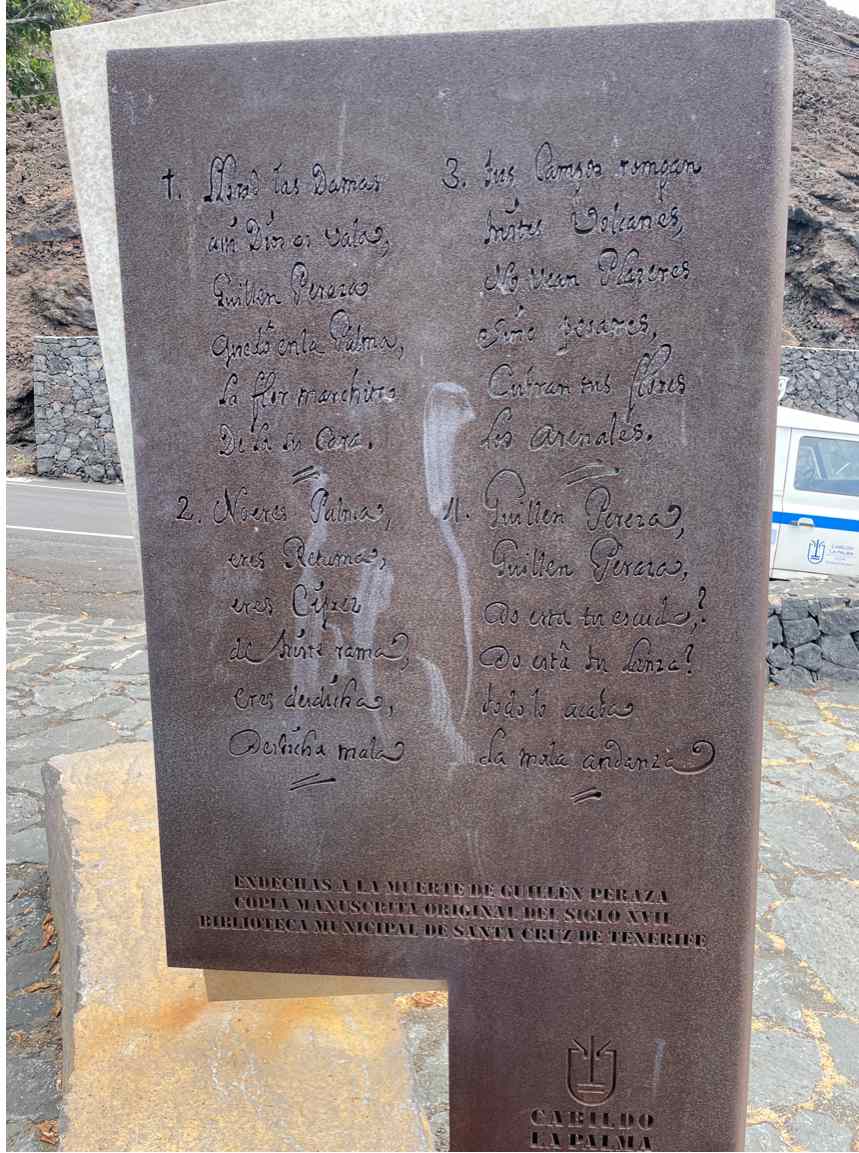 1. Llorad las Damas
asi Dios os vala,
Guillen Peraza
quedó en la Palma,
la flor marchita
De la su Cara.
2. No eres Palma,
eres Retama,
eres Ciprez
de triste rama,
eres desdicha,
Desdicha mala
3. tus Campos rompan
tristes Volcanes,
No vean Plazeres
sino pesares,
Cubran tus flores
los arenales.
4. Guillen Peraza,
Guillen Peraza,
Do esta tu escudo,?
Do está tu Lanza?
todo lo acaba
La mala andanza
ENDECHAS A LA MUERTE DE GUILLÉN PERAZA
COPIA MANUSCRITA ORIGINAL DEL SIGLO XVII
BIBLIOTECA MUNICIPAL DE SANTA CRUZ DE TENERIFE
CABILDO
LA PALMA
CABILDO
LA PALMA